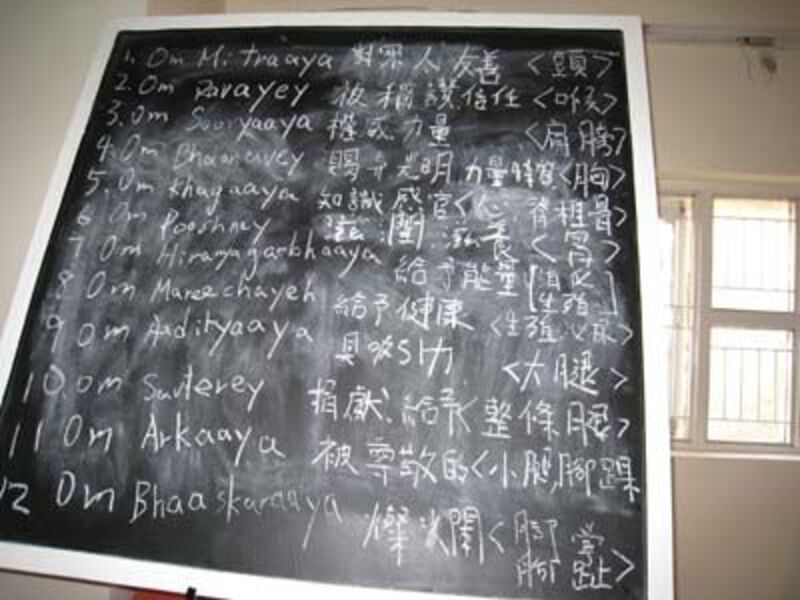 1. Om Mitraaya 對眾人友善 <頭>
2. Om Ravayey 被稱讚信任 <喉>
3. Om Sooryaaya 權威力量 <肩膀>
4. Om Bhaanavey 賜予光明力量特質 <胸>
5. Om Khagaaya 知識感官 <心 脊椎骨>
6 Om Pooshney 滋養 <胃>
7 Om Hiranyagarbhaaya 給予能量 [消化 生殖]
8 Om Mareechayeh 給予健康 <生殖 泌尿>
9 Om Aadityaaya 具吸引力 <大腿>
10. Om Saviterey 捐獻.給予 <整條腿>
11 Om Arkaaya 被尊敬的 <小腿,腳踝
12 Om Bhaaskaraaya 燦爛 <腳掌 腳趾>